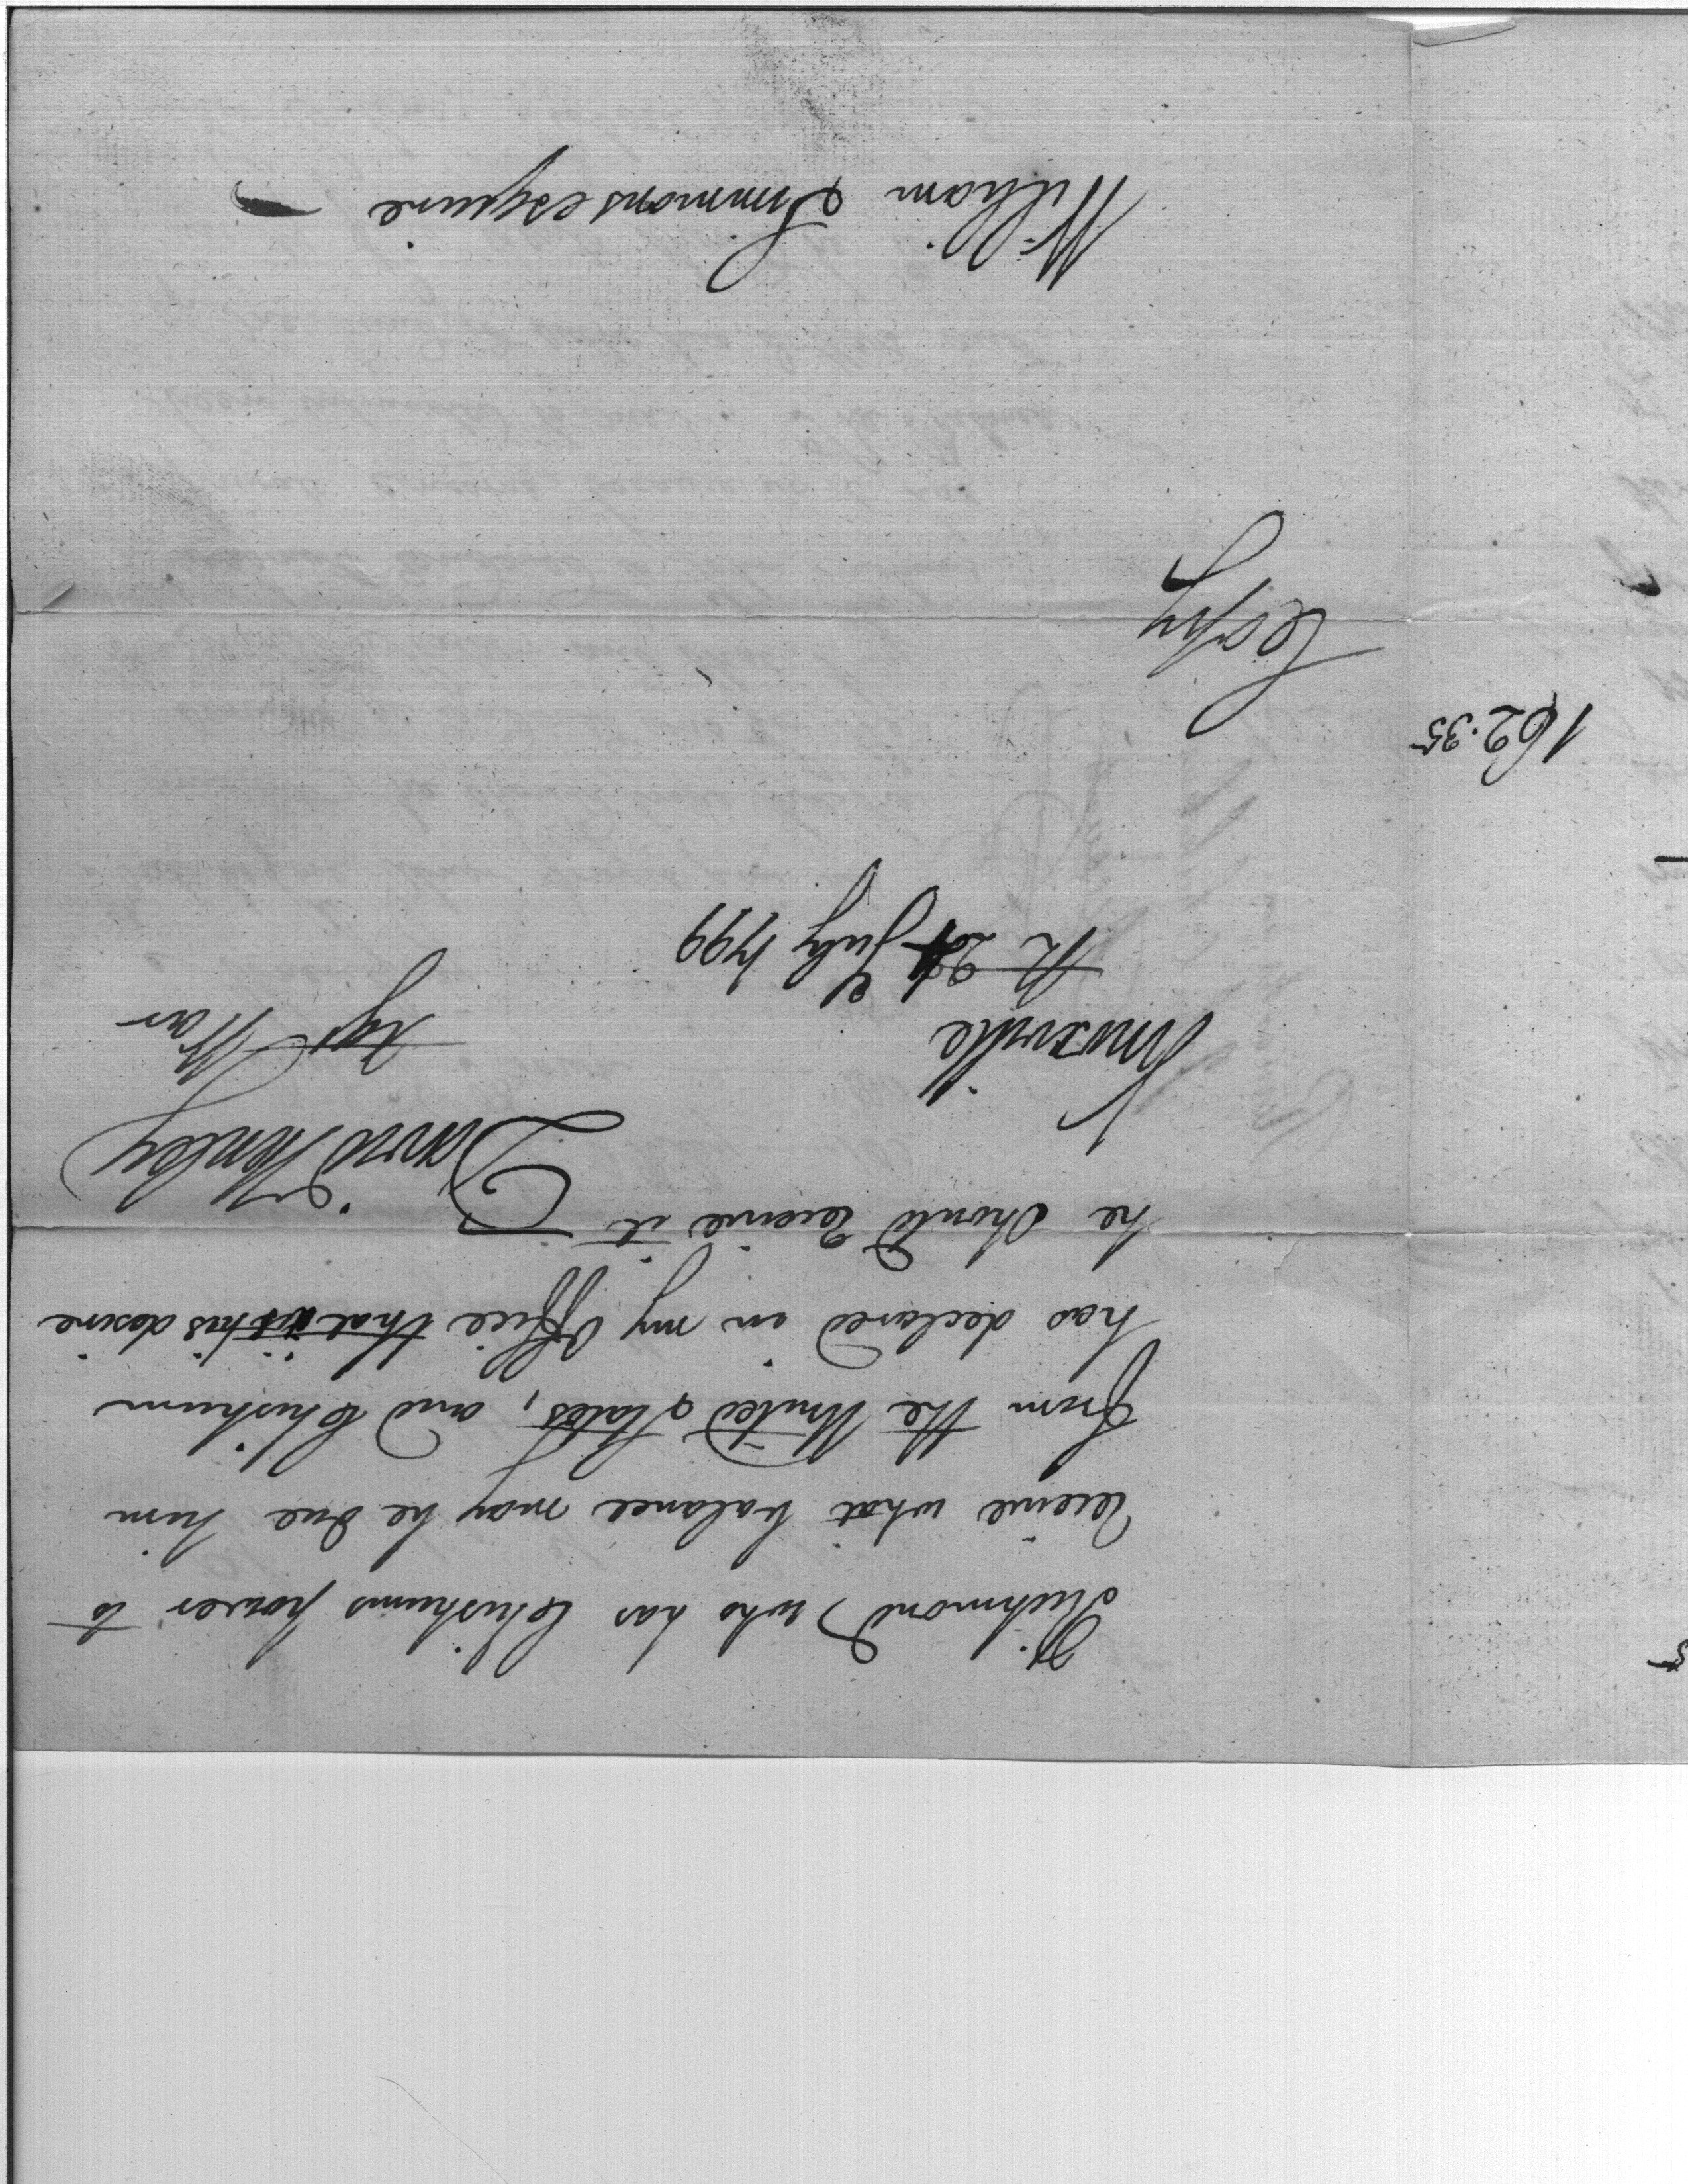 Richmond) who has Chishums power to
receive what balance may be due him
from the United States, and Chishum
has declared in my Office that it is his desire
he should receive it
David Henley
Agt War
Knoxville
24 July 1799
Copy
162.35
William Simmons esquire